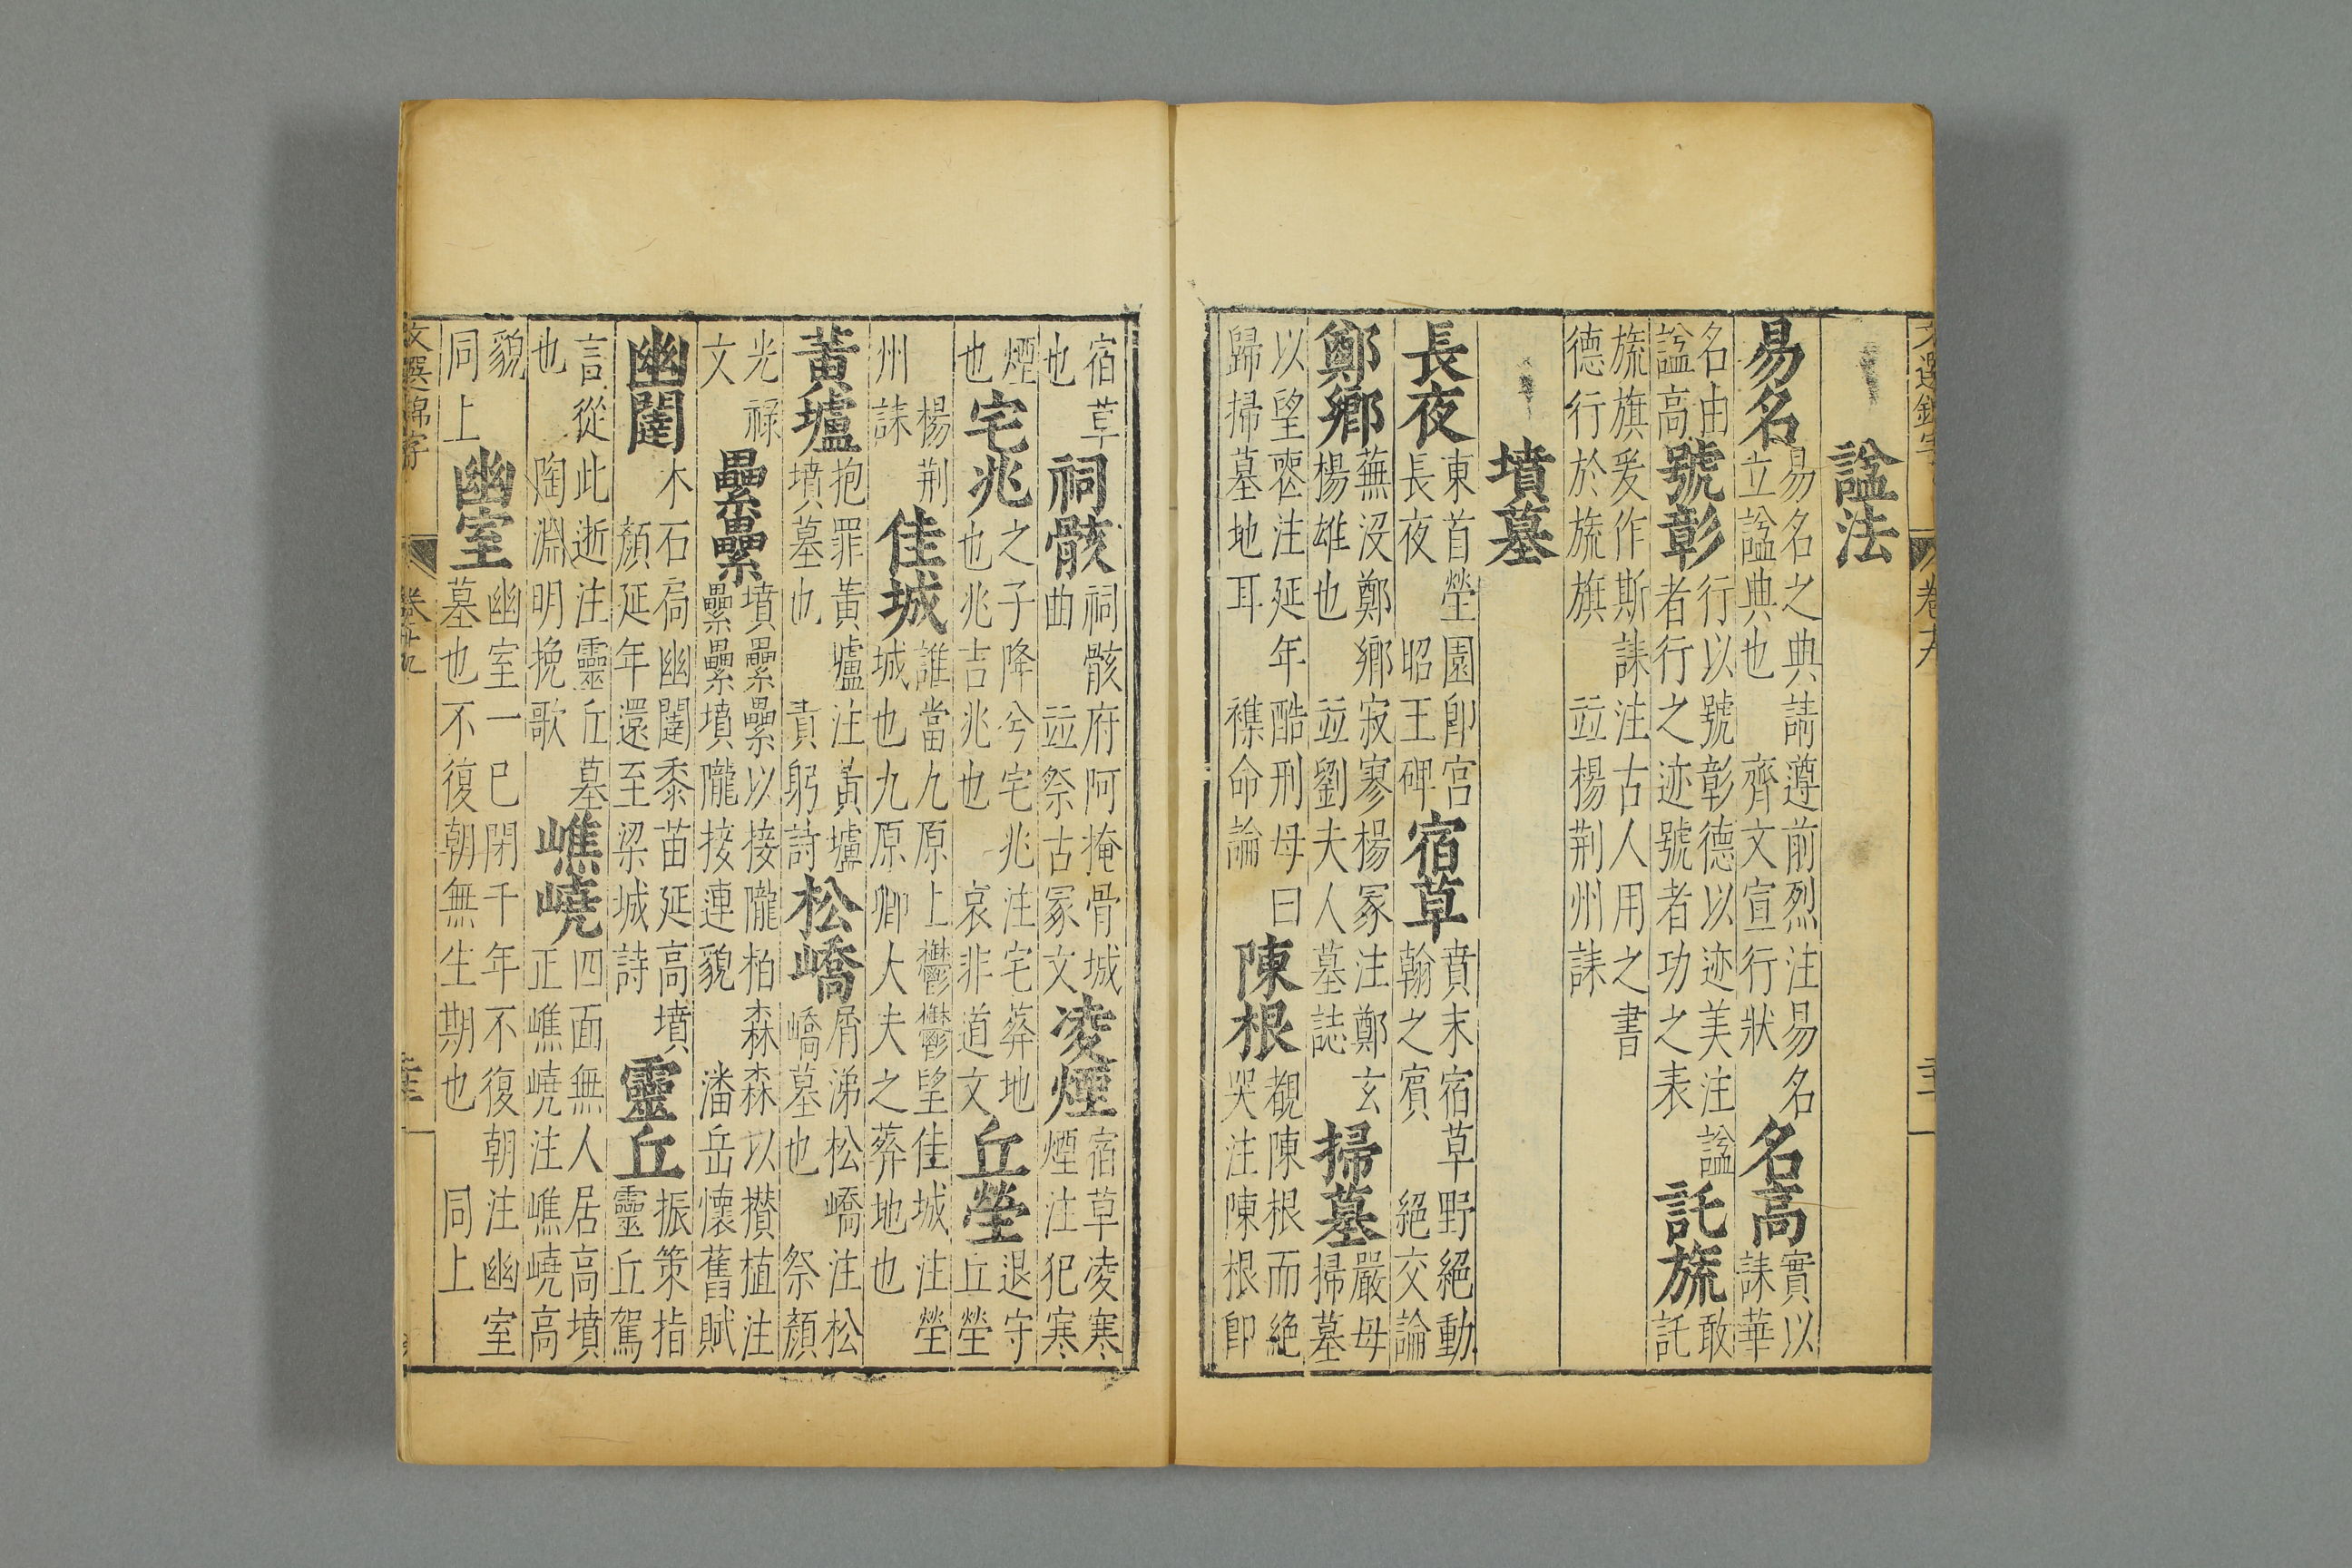 諡法
易名易名之典請遵前烈注易名立諡典也 齊文宣行狀名高實以誄華
名由諡高號彰行以號彰德以迹美注諡者行之迹號者功之表託旒敢託
旒旗爰作斯誄注古人用之書德行於旒旗 並楊荆州誄
墳墓
長夜東首塋園卽宮長夜 昭王碑宿草蕡末宿草野絕動翰之賓 絕交論
鄭鄉蕪沒鄭鄉寂寥楊冢注鄭玄楊雄也 並劉夫人墓誌掃墓嚴母掃墓
以望喪注延年酷刑母曰歸掃墓地耳 襍命論陳根覩陳根而絕哭注陳根卽
宿草也祠骸祠骸府阿掩骨城曲 並祭古冢文凌煙宿草凌寒煙注犯寒
煙也宅兆之子降兮宅兆注宅葬地也兆吉兆也 哀非道文丘塋退守丘塋
楊荆州誄佳城誰當九原上鬱鬱望佳城注塋城也九原卿大夫之葬地也
黃壚抱罪黃壚注黃壚墳墓也 責躬詩松嶠屑涕松嶠注松嶠墓也 祭顏
光祿文纍纍墳纍纍以接隴柏森森以攢植注纍纍墳隴接連貌 潘岳懷舊賦
幽闥木石扃幽闥黍苗延高墳顏延年還至梁城詩靈丘振策指靈丘駕
言從此逝注靈丘墓也 陶淵明挽歌嶕嶢四面無人居高墳正嶕嶢注嶕嶢高
貌 同上幽室幽室一已閉千年不復朝注幽室墓也不復朝無生期也 同上
文選錦字 卷十九